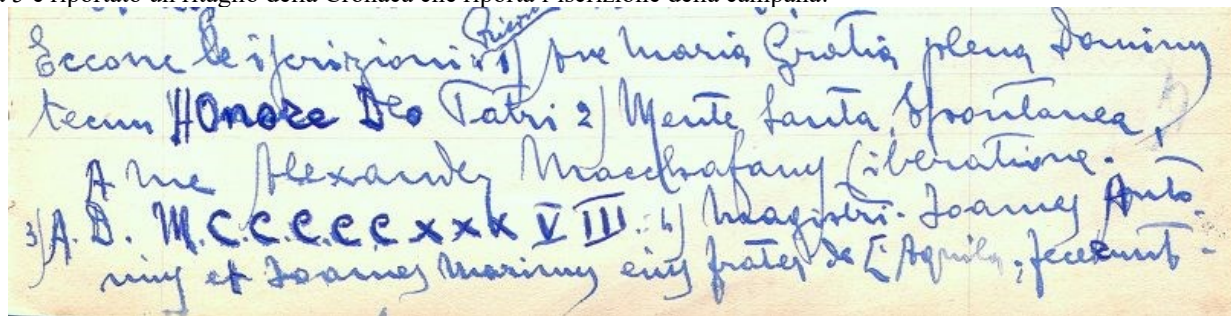 è riportato un ritaglio della Cronaca che riporta l'iscrizione della campana.
Eccone le iscrizioni: 1) Ave Maria Gratia plena Dominus
tecum HOnore Deo Patri 2) Mente Santa, Spontanea,
A me Alexander Liberatione.
3) A. D. M.C.C.C.C.C.XXX V III. 4) Magistri. Joannes Anto-
nius et Joannes Marinus eius frater de L'Aquila, fecerunt-